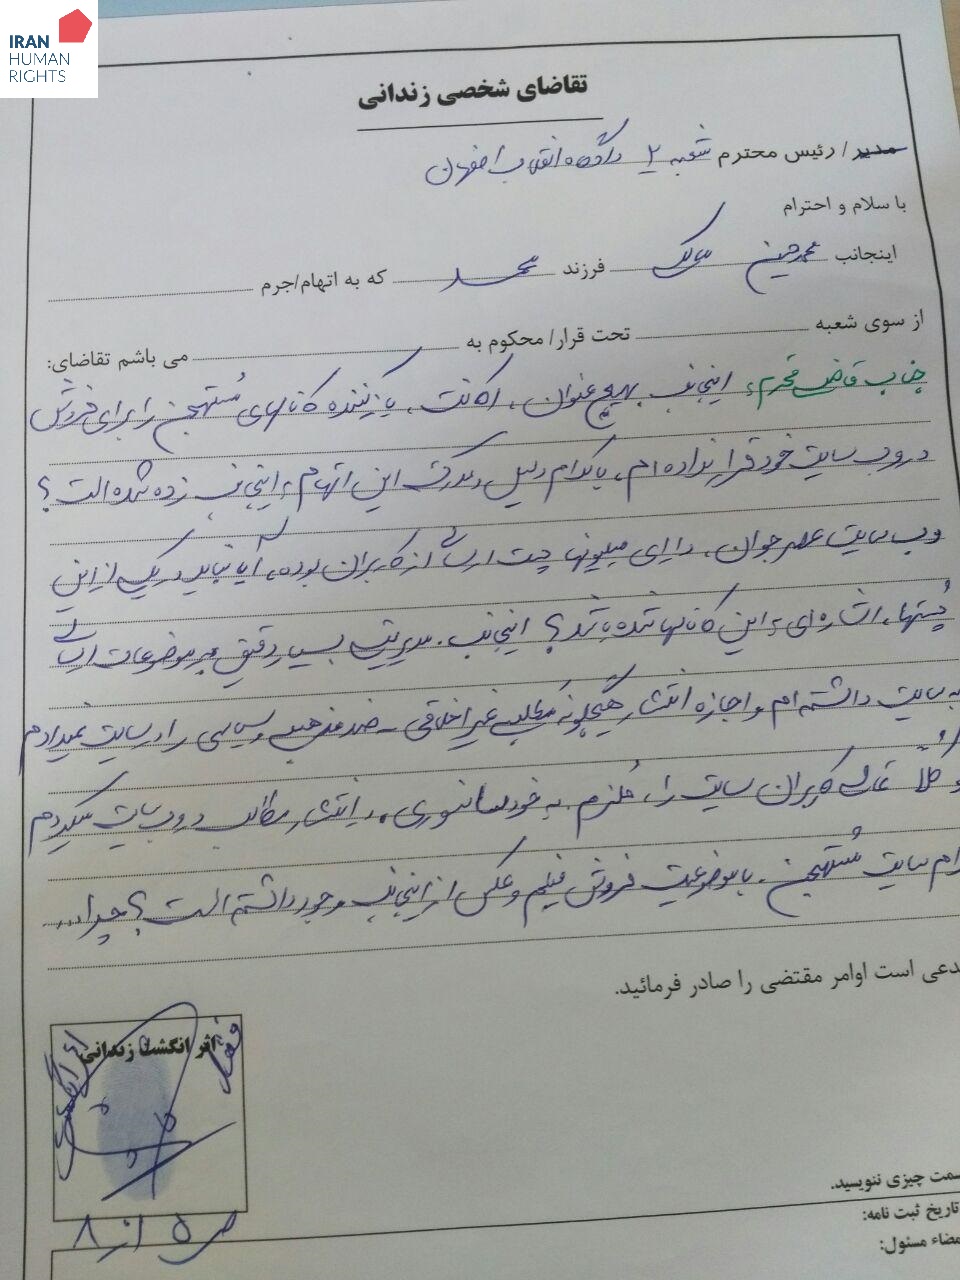 IRAN
HUMAN
RIGHTS
تقاضای شخصی زندانی
مدیر / رئیس محترم شعبه ۲ دادگاه انقلاب اصفهان
با سلام و احترام
اینجانب محمدحسین مالک فرزند محمد که به اتهام/جرم
از سوی شعبه تحت قرار/ محکوم به می باشم تقاضای:
جناب قاضی محترم، اینجانب بهیچ عنوان، اکانت، یا کانالهای مُستهجن را برای فروش
در وب سایت خود قرار نداده ام، با کدام دلیل و مدرک این اتهام به اینجانب زده شده است؟
وب سایت عصر جوان، دارای میلیونها چت ارسالی از کاربران بوده، آیا نباید در یکی از این
چتها، اشاره ای به این کانالها شده باشد؟ اینجانب، مدیریت بسیار دقیق بر موضوعات ارسالی
به سایت داشته ام و اجازه انتشار هیچگونه مطالب غیر اخلاقی - ضد مذهبی و سیاسی را در سایت نمیدادم
و کُلاً کاربران سایت را، مُلزم به خودسانسوری، در انتشار مطالب در وب سایت میکردم
کدام سایت مُستهجن، با موضوعیت فروش فیلم و عکس از اینجانب وجود داشته است؟ چرا....
دعی است اوامر مقتضی را صادر فرمائید.
اثر انگشت زندانی
اثر انگشت
ص ۵ از ۸
سمت چیزی ننویسید.
تاریخ ثبت نامه:
مضاء مسئول: